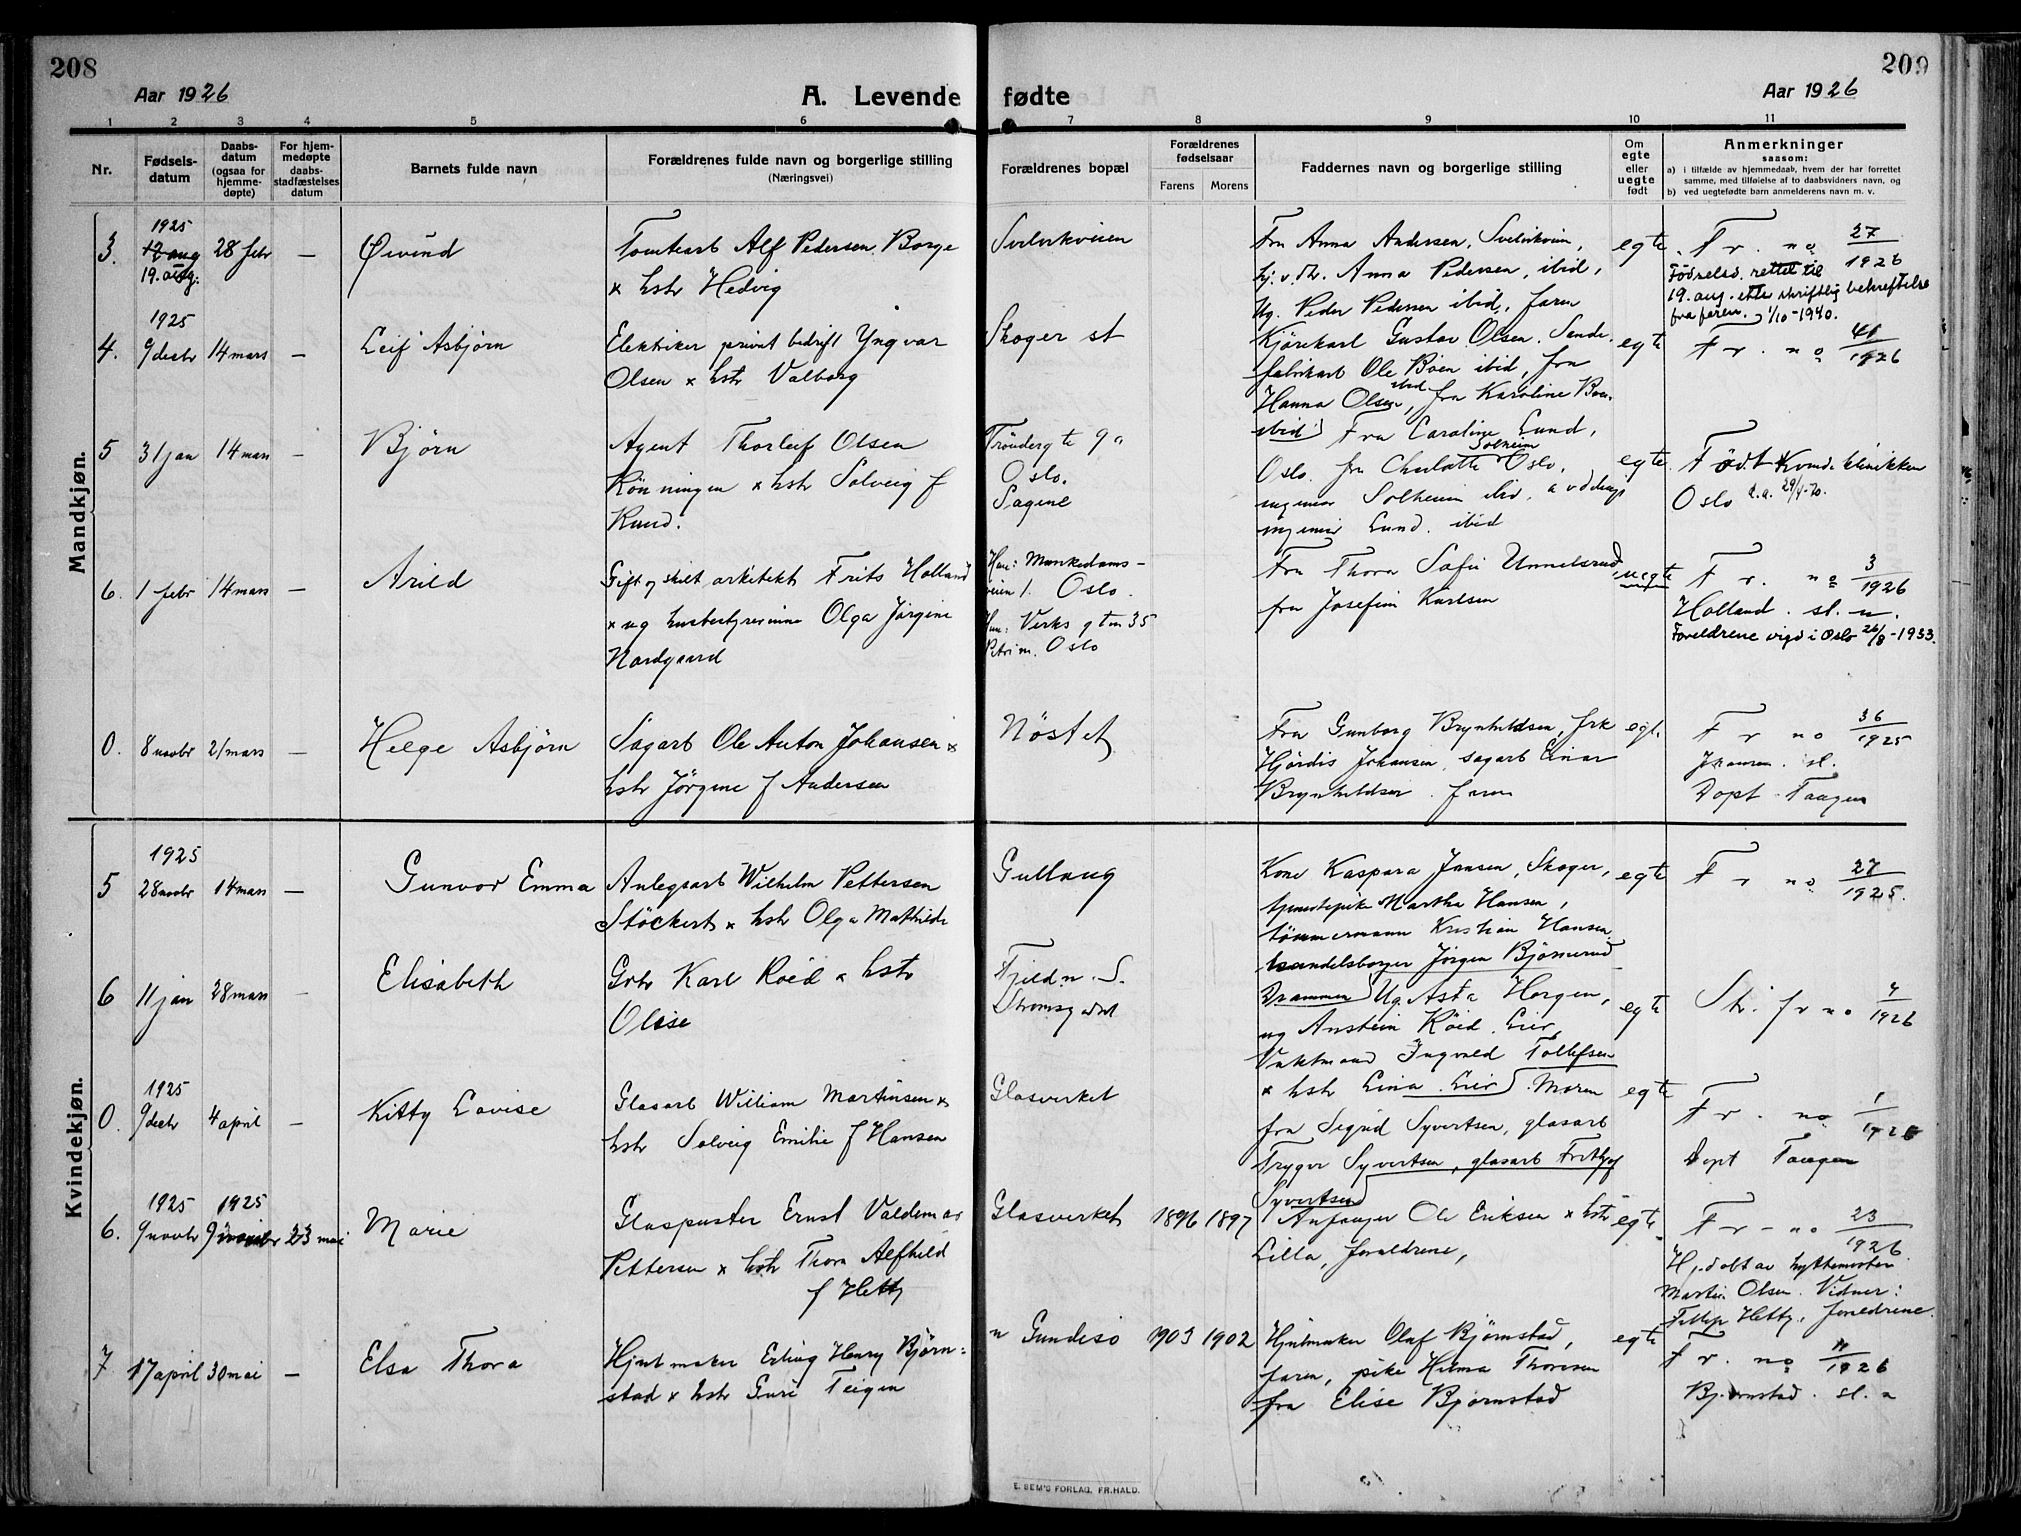 208
209
Aar 1926
A. Levende fødte
Aar 1926
1 2 3 4 5 6 7 8 9 10 11
Nr.
Fødsels-
datum
Daabs-
datum
(ogsaa for
hjemme-
døpte)
For hjem-
medøpte
daabs-
stadfæstelses
datum
Barnets fulde navn
Forældrenes fulde navn og borgerlige stilling
(Næringsvei)
Forældrenes bopæl
Forældrenes
fødselsaar
Farens Morens
Faddernes navn og borgerlige stilling
Om
egte
eller
uegte
født
Anmerkninger
saasom:
a) i tilfælde av hjemmedaab, hvem der har forrettet
samme, med tilføielse af to daabsvidners navn, og
b) ved uegtefødte barn anmelderens navn m. v.
Mandkjøn.
1925
3. 12 aug 28 febr — Øivind
19. aug.
Tomtearb Alf Pedersen Borge
x hstr Hedvig
Svelvikveien
Fru Anna Andersen, Svelvikveien,
Anna Pedersen, ibid,
Ug. Peder Pedersen ibid, faren
egte.
Fr. no 27/1926
Födselsd. rettet til
19. aug. etter skriftlig bekreftelse
fra faren. 1/10-1940.
1925
4. 9 decbr 14 mars — Leif Asbjørn
Elektriker privat bedrift Yngvar
Olsen x hstr Valborg
Skoger st
Kjørekarl Gustav Olsen. Sande,
fabrikarb Ole Boen ibid, fru
Hanna Olsen ibid, fru Karoline Boen
ibid
egte
Fr. no 41/1926
5 31 jan 14 mars — Bjørn
Agent Thorleif Olsen
Rönningen x hstr Solveig f
Lund.
Trönderg te 9a
Oslo.
Sagene
Fru Caroline Lund,
Oslo. fru Charlotte Solheim Oslo,
ingeniør Solheim ibid,
ingeniør Lund. ibid
egte
Födt Kvindeklinikken
Oslo d.a. 29/4-70.
6. 1 febr 14 mars — Arild
Gift og skilt arkitekt Frits Holland
x ug husbestyrerinne Olga Jörgine
Nordgaard
Han: Munkedams-
veien 1. Oslo.
Hun: Verks gtn 35
Petri m. Oslo
Fru Thora Sofie Unnelsrud,
fru Josefine Karlsen
uegte
Fr. no 3/1926
Holland. sl. n.
Foreldrene vigd i Oslo 26/8-1933.
0. 8 novbr 21 mars — Helge Asbjörn
Sagarb Ole Anton Johansen x
hstr Jörgine f Andersen
Nöstet
Fru Gunborg Brynhildsen, frk
Hjördis Johansen, sagarb Einar
Brynhildsen. faren
egt.
Fr no 36/1925
Johansen. sl.
Döpt Tangen
Kvindekjøn.
1925
5 28 novbr 14 mars — Gunvor Emma
Anlegsarb Wilhelm Pettersen
Stöckert x hstr Olga Mathilde
Gullaug
Kone Kaspara Jensen, Skoger,
tjenestepike Martha Hansen,
tömmermann Kristian Hansen
handelsborger Jörgen Bjömerud
Drammen
egte
Fr no 27/1925.
6 11 jan 28 mars — Elisabeth
Grbr Karl Röed x hstr
Olise
Fjeld n. S.
Strømsgodset
Ug. Asta Horgen,
ug Anstein Röed. Lier,
Vaktmand Ingvald Tollefsen
x hstr Lina Lier
egte
Str. fr no 4/1926
1925
0. 9 decbr 4 april — Kitty Lovise
Glasarb William Martinsen x
hstr Solveig Emilie f Hansen
Glasverket
Moren
fru Sigrid Syvertsen, glasarb
Trygve Syvertsen, glasarb Frithjof
Syvertsen
egte
Fr. no 1/1926
Döpt Tangen
1925 1925
6. 9 novbr 9 novbr 23 mai Marie
Glaspuster Ernst Valdemar
Pettersen x hstr Thora Alfhild
f Hetty
Glasverket 1896 1897
Anfanger Ole Eriksen x hstr
Lilla, foreldrene,
egte
Fr - no 23/1926.
Hj.döbt av hyttemester
Martin Olsen. Vidner:
Fillip Hetty, foreldrene.
7 17 april 30 mai — Elsa Thora
Hjulmaker Erling Henry Björn-
stad x hstr Guri Teigen
n Gundesö 1903 1902
Hjulmaker Olaf Bjørnstad,
faren, pike Hilma Thoresen
fru Elise Bjørnstad
egte
Fr. no 11/1926
Bjørnstad. sl. n
E. SEM'S FORLAG, FR.HALD.